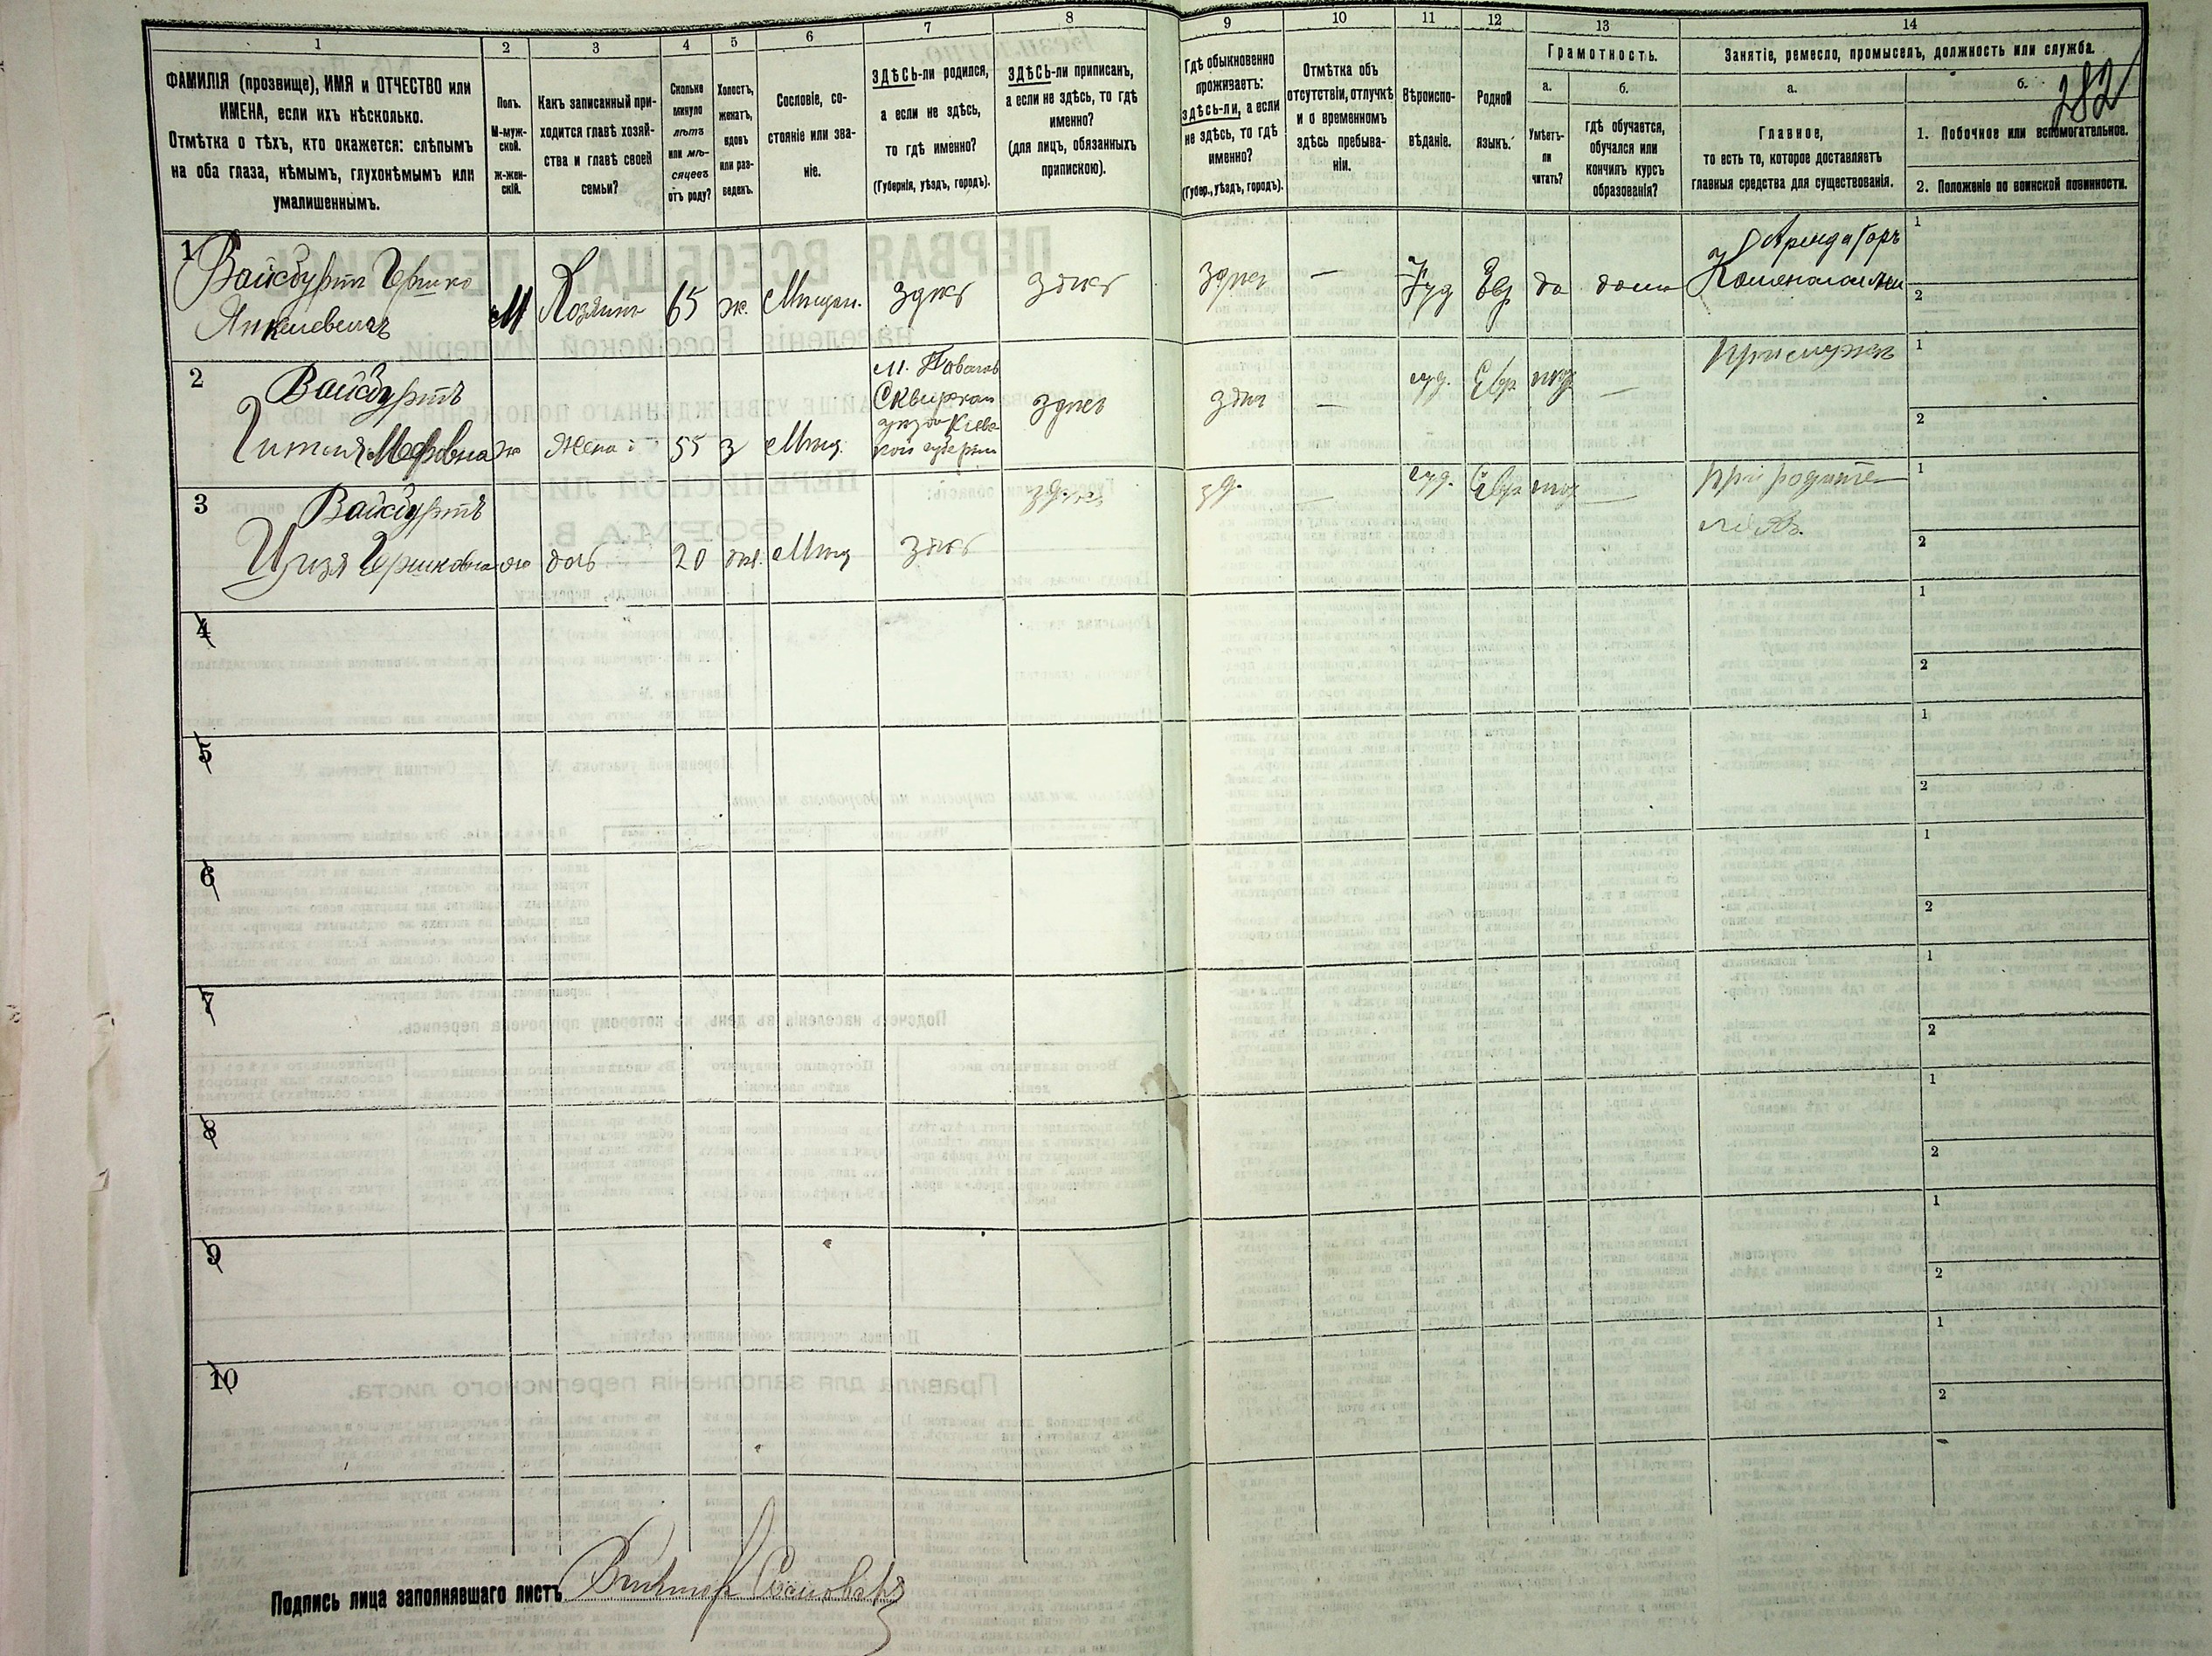 1 2 3 4 5 6 7 8 9 10 11 12 13 14
ФАМИЛІЯ (прозвище), ИМЯ и ОТЧЕСТВО или
ИМЕНА, если ихъ нѣсколько.
Отмѣтка о тѣхъ, кто окажется: слѣпымъ
на оба глаза, нѣмымъ, глухонѣмымъ или
умалишеннымъ.
Полъ.
М-муж-
ской.
Ж-жен-
скій.
Какъ записанный при-
ходится главѣ хозяй-
ства и главѣ своей
семьи?
Сколько
минуло
лѣтъ
или мѣ-
сяцевъ
отъ роду?
Холостъ,
женатъ,
вдовъ
или раз-
веденъ.
Сословіе, со-
стояніе или зва-
ніе.
ЗДѢСЬ-ли родился,
а если не здѣсь,
то гдѣ именно?
(Губернія, уѣздъ, городъ).
ЗДѢСЬ-ли приписанъ,
а если не здѣсь, то гдѣ
именно?
(для лицъ, обязанныхъ
припискою).
Гдѣ обыкновенно
проживаетъ:
здѣсь-ли, а если
не здѣсь, то гдѣ
именно?
(Губер., уѣздъ, городъ).
Отмѣтка объ
отсутствіи, отлучкѣ
и о временномъ
здѣсь пребыва-
ніи.
Вѣроиспо-
вѣданіе.
Родной
языкъ.
Грамотность.
а.
Умѣетъ-
ли
читать?
б.
гдѣ обучается,
обучался или
кончилъ курсъ
образованія?
Занятіе, ремесло, промыселъ, должность или служба.
а.
Главное,
то есть то, которое доставляетъ
главныя средства для существованія.
б.
282
1. Побочное или вспомогательное.
2. Положеніе по воинской повинности.
1
Вайсбуртъ Гершко
Янкелевичъ
М Хозяинъ 65 ж. Мѣщан. здѣсь здѣсь здѣсь — Іуд Евр да дома
Арендаторъ
1
2
2
Вайсбуртъ
ж Жена 55 з Мѣщ.
Сквирскаго
уѣзда Кіевс
кой губерніи
здѣсь здѣсь — іуд. Евр —
1
2
3
Вайсбуртъ
Гершковна ж дочь 20 дѣв. Мѣщ здѣсь здѣсь зд. — іуд. Евр —
при родите
ляхъ.
1
2
4
1
2
5
1
2
6
1
2
7
1
2
8
1
2
9
1
2
10
1
2
Подпись лица заполнявшаго листъ